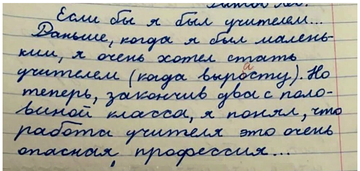 Если бы я был учителем...
Раньше, когда я был малень-
ким, я очень хотел стать
учителем (када вырросту). Но
теперь, закончив два с поло-
виной класса, я понял, что
работа учителя это очень
опасная, профессия...